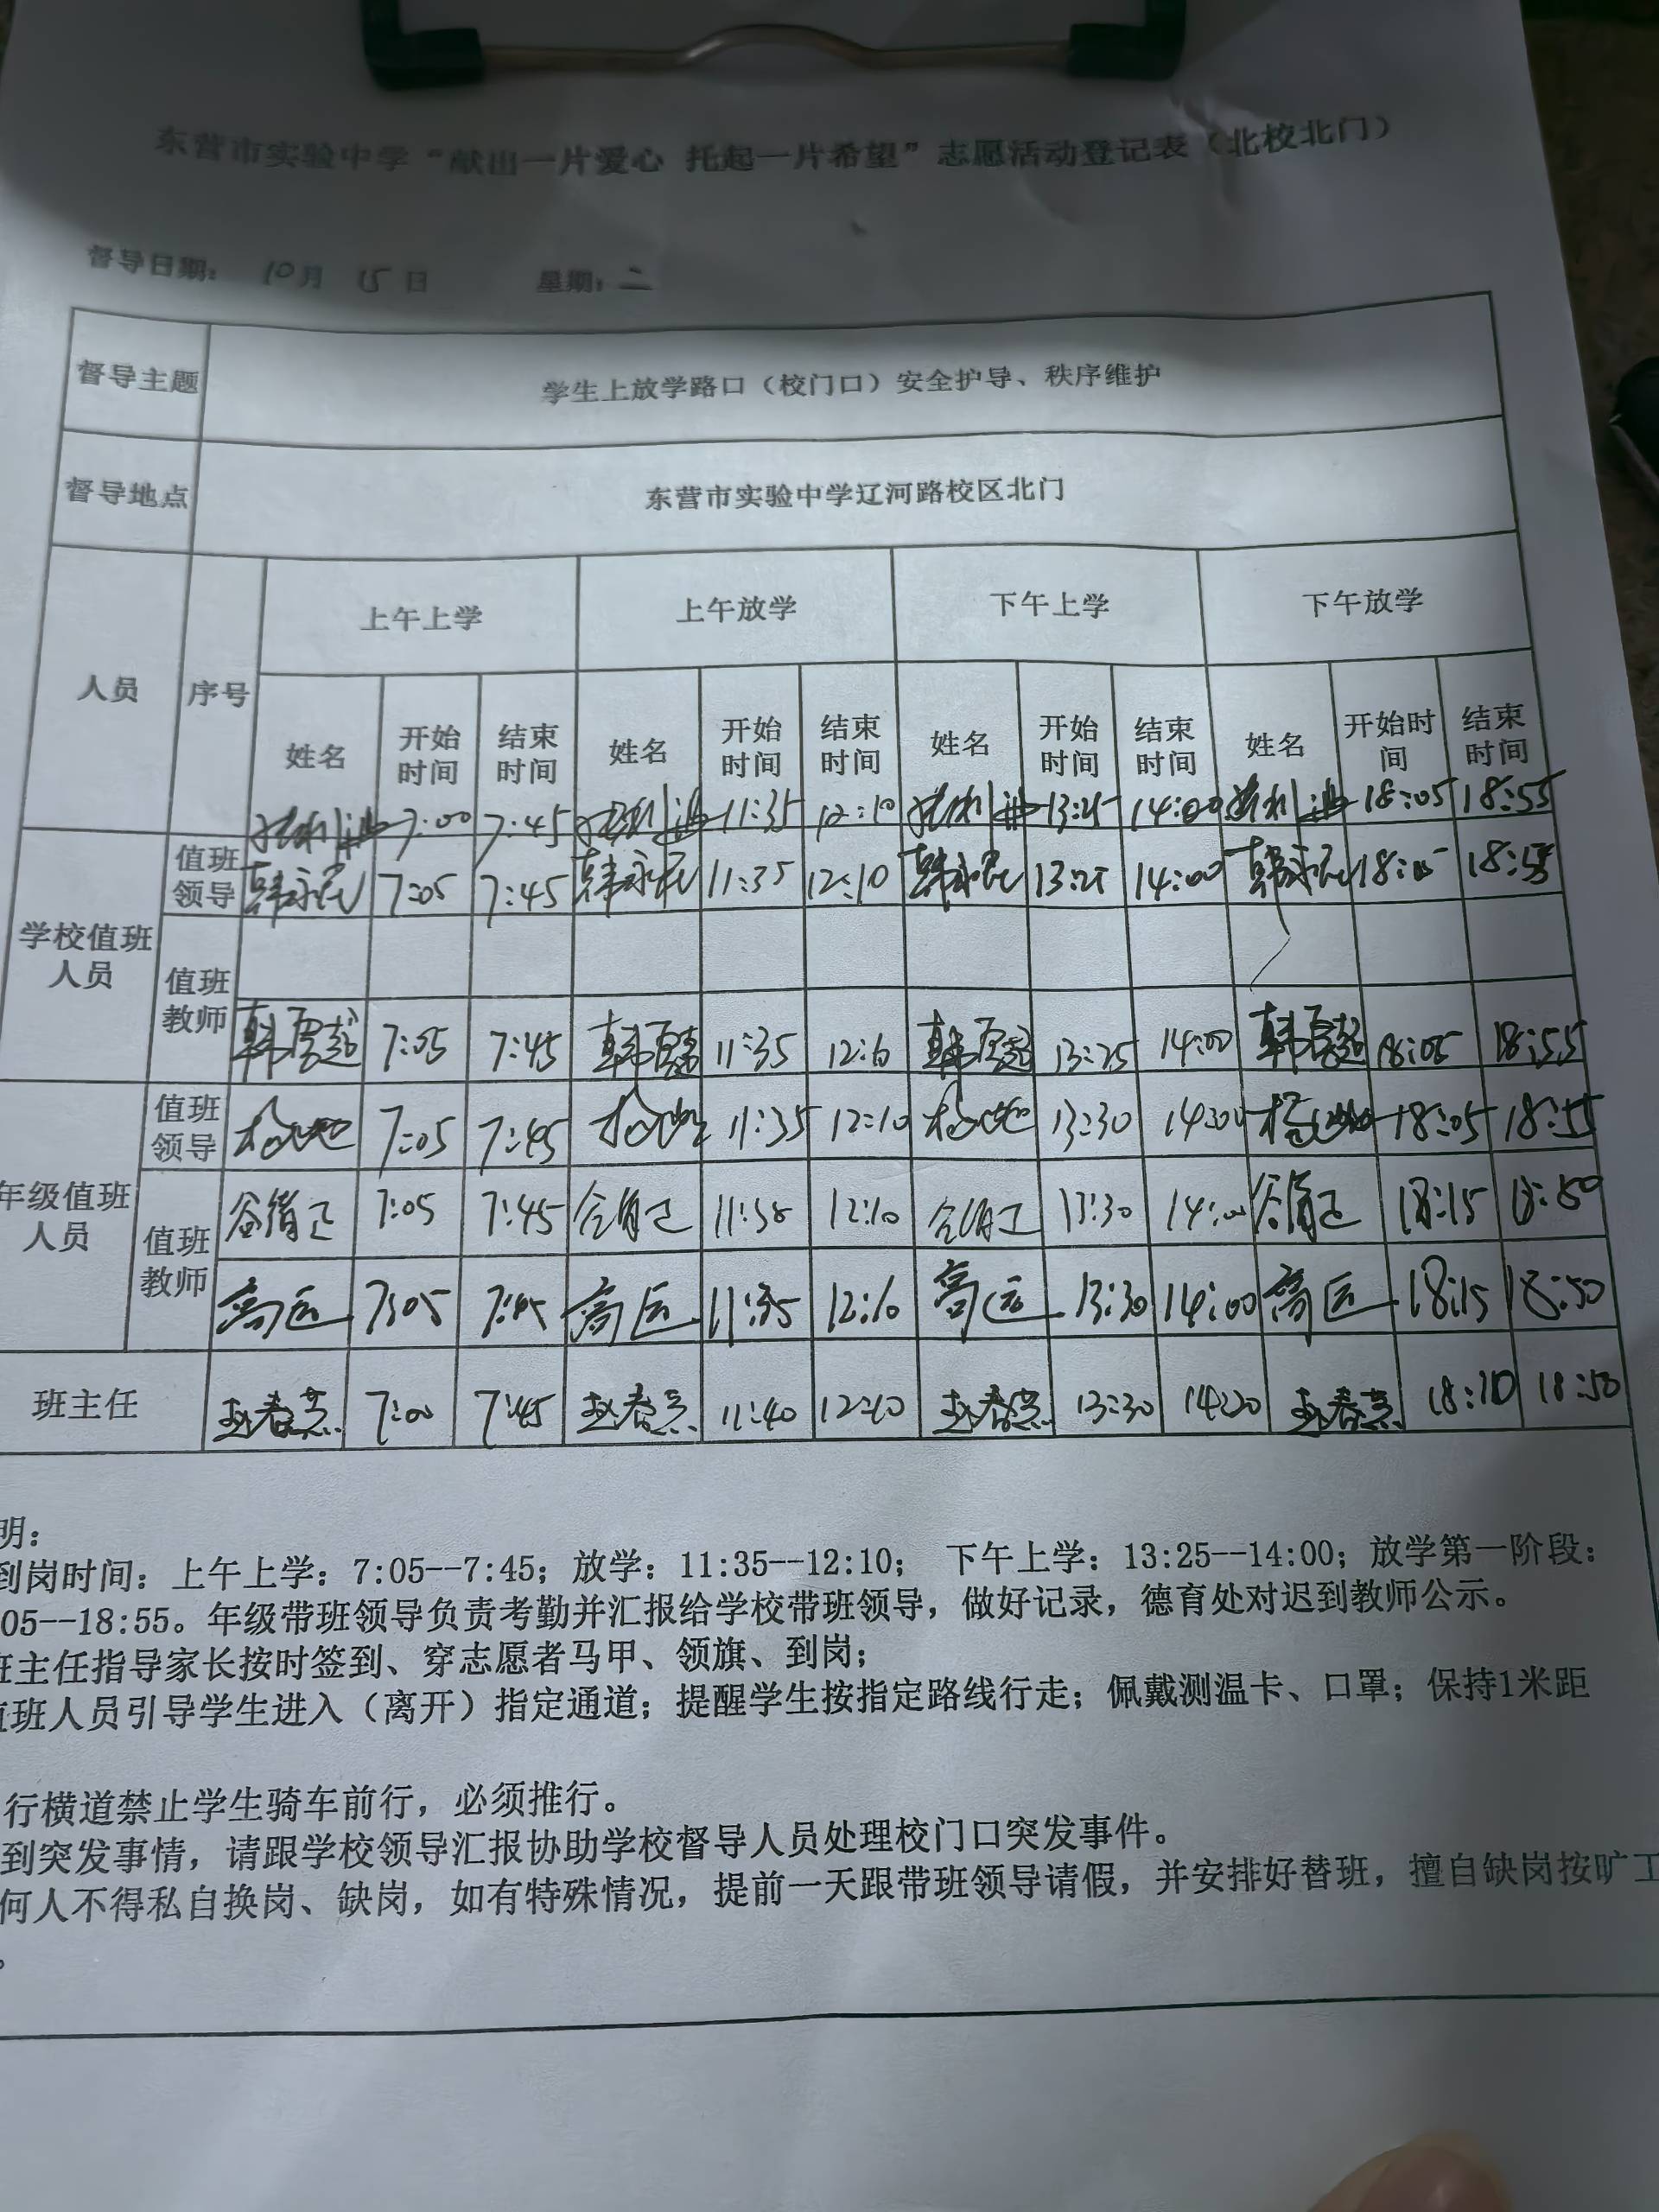 东营市实验中学“献出一片爱心 托起一片希望”志愿活动登记表（北校北门）
督导日期： 10月 15日 星期：二
督导主题 学生上放学路口（校门口）安全护导、秩序维护
督导地点 东营市实验中学辽河路校区北门
人员 序号 上午上学 上午放学 下午上学 下午放学
姓名 开始时间 结束时间 姓名 开始时间 结束时间 姓名 开始时间 结束时间 姓名 开始时间 结束时间
7:00 7:45 11:35 12:10 13:25 14:00 18:05 18:55
学校值班人员 值班领导 韩永 7:05 7:45 韩永 11:35 12:10 韩永 13:25 14:00 韩永 18:05 18:55
值班教师 韩 超 7:05 7:45 韩 11:35 12:10 韩 超 13:25 14:00 韩 超 18:05 18:55
年级值班人员 值班领导 7:05 7:45 11:35 12:10 13:30 14:00 18:05 18:55
值班教师 谷 7:05 7:45 谷 11:35 12:10 谷 13:30 14:00 谷 18:15 18:50
高远 7:05 7:45 高远 11:35 12:10 高远 13:30 14:00 高远 18:15 18:50
班主任 赵春 7:00 7:45 赵春 11:40 12:10 赵春 13:30 14:20 赵春 18:10 18:50
明：
到岗时间：上午上学：7:05--7:45；放学：11:35--12:10； 下午上学：13:25--14:00；放学第一阶段：
05--18:55。年级带班领导负责考勤并汇报给学校带班领导，做好记录，德育处对迟到教师公示。
班主任指导家长按时签到、穿志愿者马甲、领旗、到岗；
值班人员引导学生进入（离开）指定通道；提醒学生按指定路线行走；佩戴测温卡、口罩；保持1米距
行横道禁止学生骑车前行，必须推行。
到突发事情，请跟学校领导汇报协助学校督导人员处理校门口突发事件。
何人不得私自换岗、缺岗，如有特殊情况，提前一天跟带班领导请假，并安排好替班，擅自缺岗按旷工
。